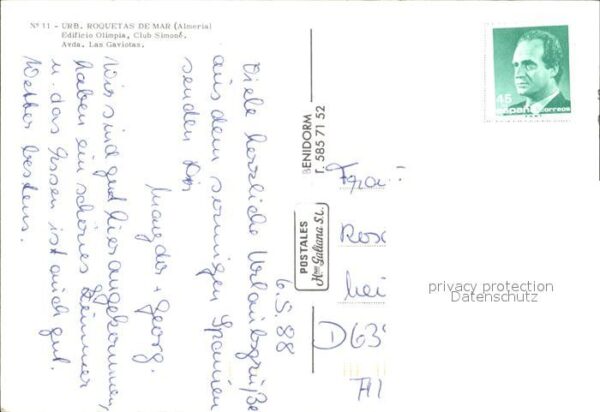 Nº 11 - URB. ROQUETAS DE MAR (Almería)
Edificio Olimpia, Club Simoné.
Avda. Las Gaviotas.
6.5.88
Viele herzliche Urlaubsgrüße
aus dem sonnigen Spanien
senden Dir
+ Georg.
Wir sind gut hier angekommen,
haben ein schönes Zimmer
u. das Essen ist auch gut.
Wetter bestens.
BENIDORM
T. 585 71 52
POSTALES
Hnos Galiana S.L.
45
España correos
privacy protection
Datenschutz